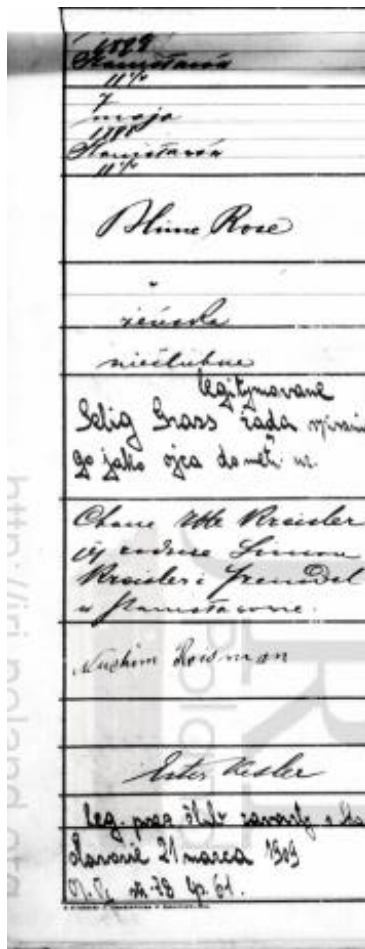 1888
Stanisławów
11 1/2
7
maja
1888
Stanisławów
11 1/2
Blime Rose
żeńska
nieślubne
legitymowane
Selig Grass żąda wpisania
go jako ojca do metr. ur.
Chane Itte Kreisler
córka Simona
Kreisler i Freudel
w Stanisławowie.
Nuchim Roisman
Ester Kesler
leg. przez ślub zawarty w Sta
sławowie 21 marca 1909
str. 78 lp. 61.
http://jri-poland.org
JRI
Poland